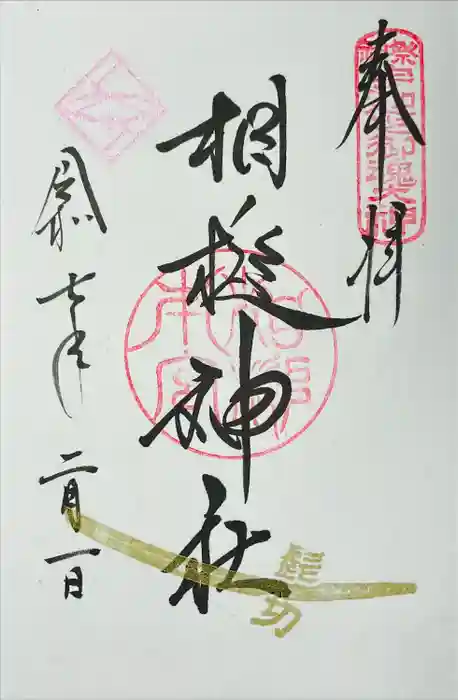 奉拝
相槌神社
令和七年二月一日
髭切